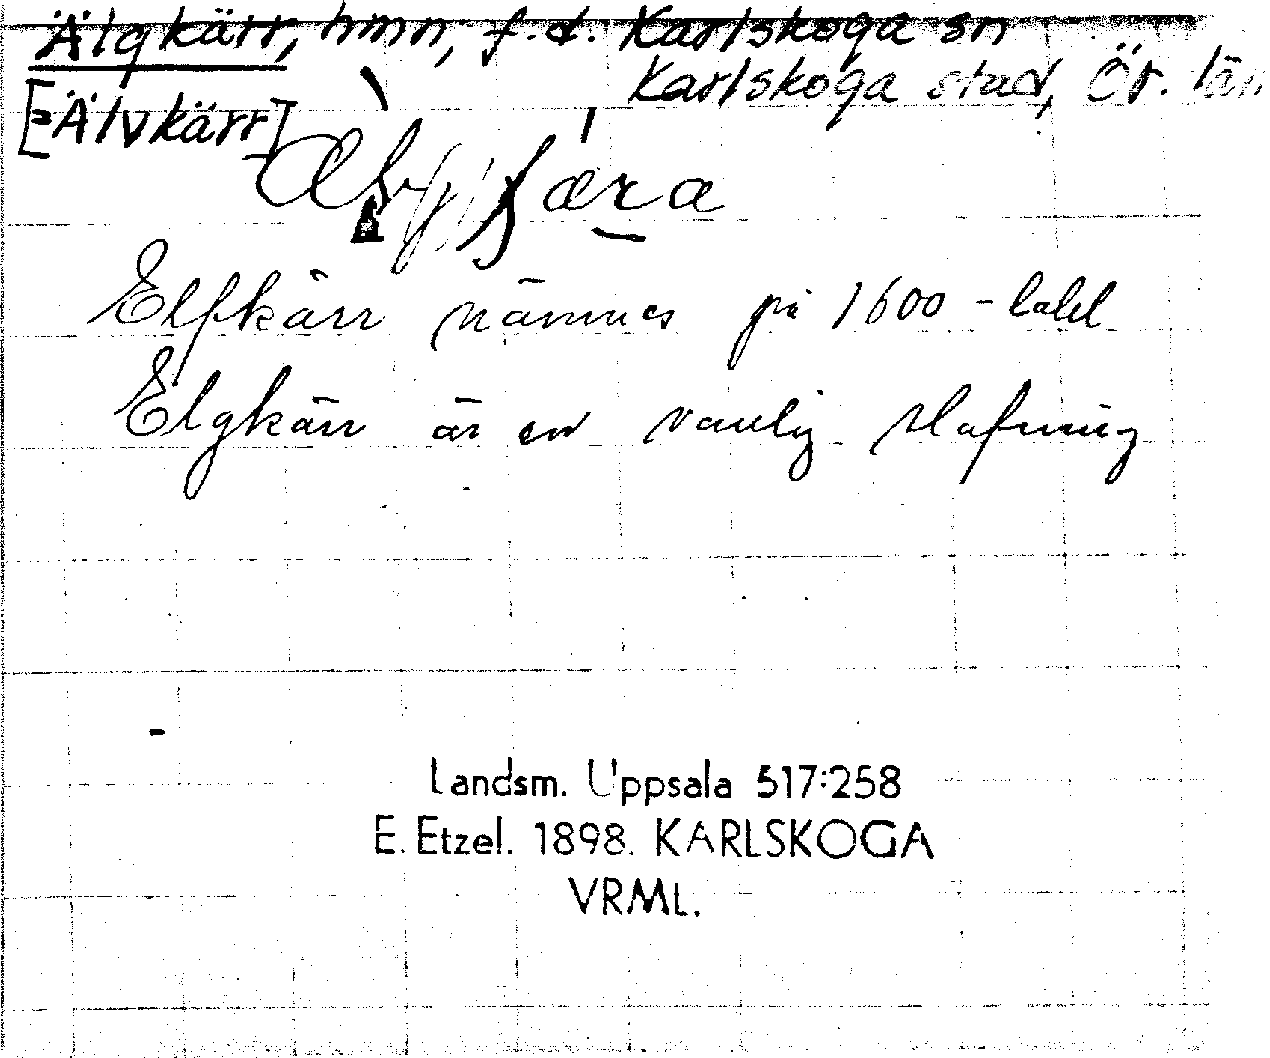 Älgkärr, hmn, f.d. Karlskoga sn
Karlskoga stad, Ör. län
[=Älvkärr]
Elfkärr nämnes på 1600-talet
Elgkärr är en vanlig stafning
Landsm. Uppsala 517:258
E. Etzel. 1898. KARLSKOGA
VRML.